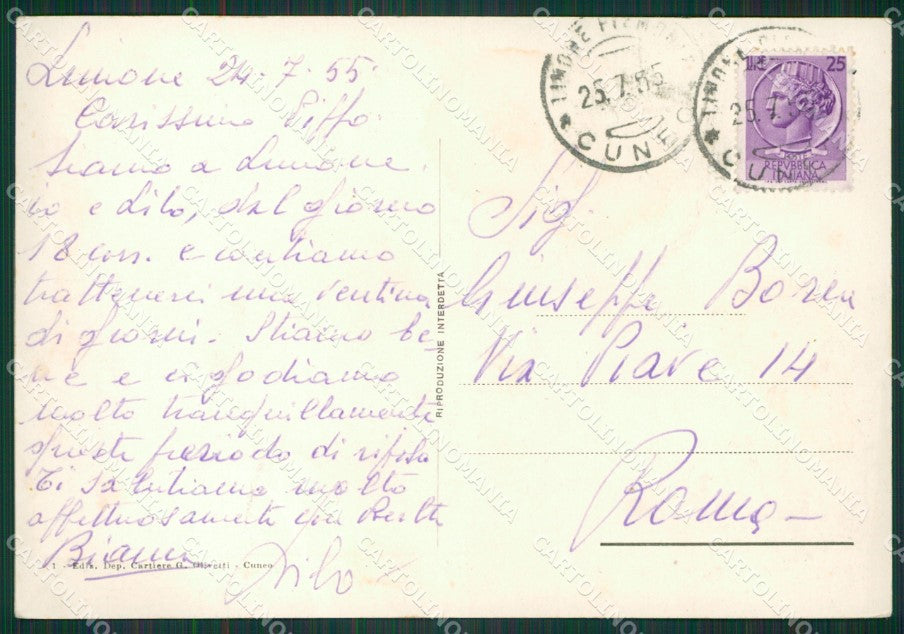 Limone 24·7·55·
Carissimo Piffo
siamo a Limone
io e Lilo, dal giorno
18 corr. e contiamo
trattenerci una ventina
di giorni. Stiamo be-
ne e ci godiamo
molto tranquillamente
questo periodo di riposo
Ti salutiamo molto
affettuosamente con Berta
Bianca
Lilo
1 - Ediz. Dep. Cartiere G. Olivetti - Cuneo
RIPRODUZIONE INTERDETTA
LIMONE PIEMONTE
25.7.55
* CUNEO
LIRE 25
POSTE
REPVBBLICA
ITALIANA
Sig.
Giuseppe Borea
Via Piave 14
Roma
CARTOLINOMANIA